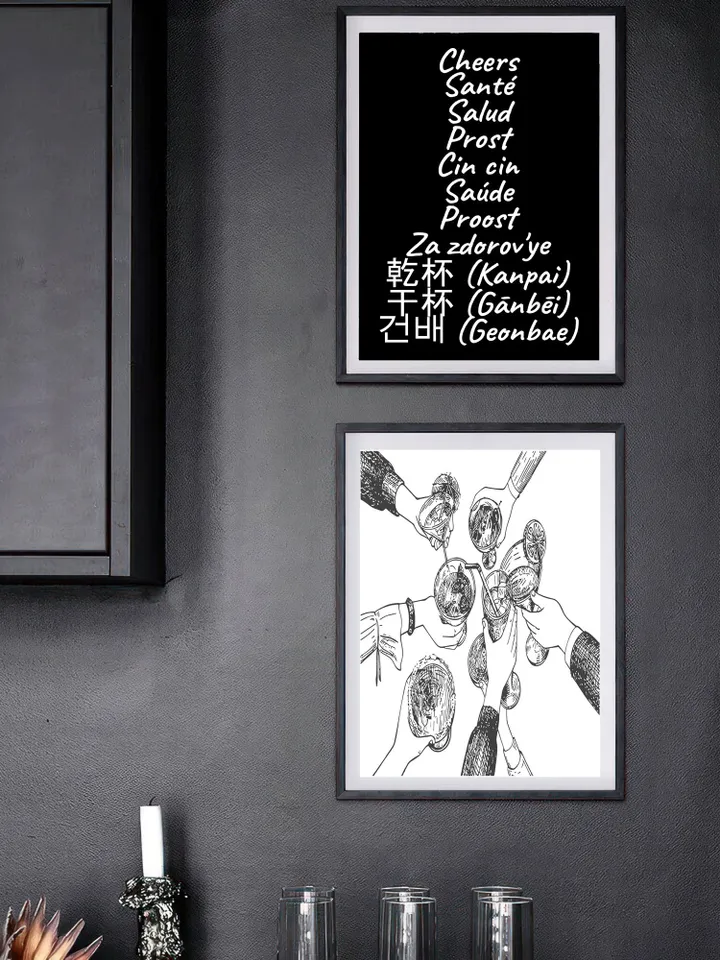 Cheers
Santé
Salud
Prost
Cin cin
Saúde
Proost
Za zdorov'ye
乾杯 (Kanpai)
干杯 (Gānbēi)
건배 (Geonbae)